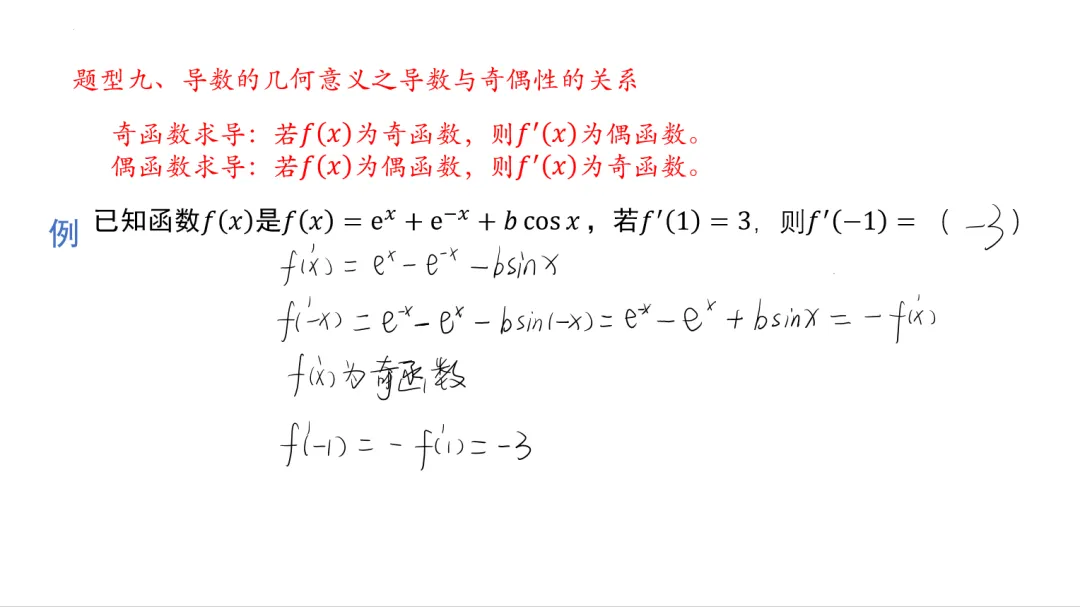 题型九、导数的几何意义之导数与奇偶性的关系
奇函数求导：若f(x)为奇函数，则f′(x)为偶函数。
偶函数求导：若f(x)为偶函数，则f′(x)为奇函数。
例 已知函数f(x)是f(x) = eˣ + e⁻ˣ + b cos x，若f′(1) = 3，则f′(−1) =（ −3 ）
f′(x) = eˣ − e⁻ˣ − bsinx
f′(−x) = e⁻ˣ − eˣ − bsin(−x) = e⁻ˣ − eˣ + bsinx = − f′(x)
f′(x)为奇函数
f′(−1) = − f′(1) = −3